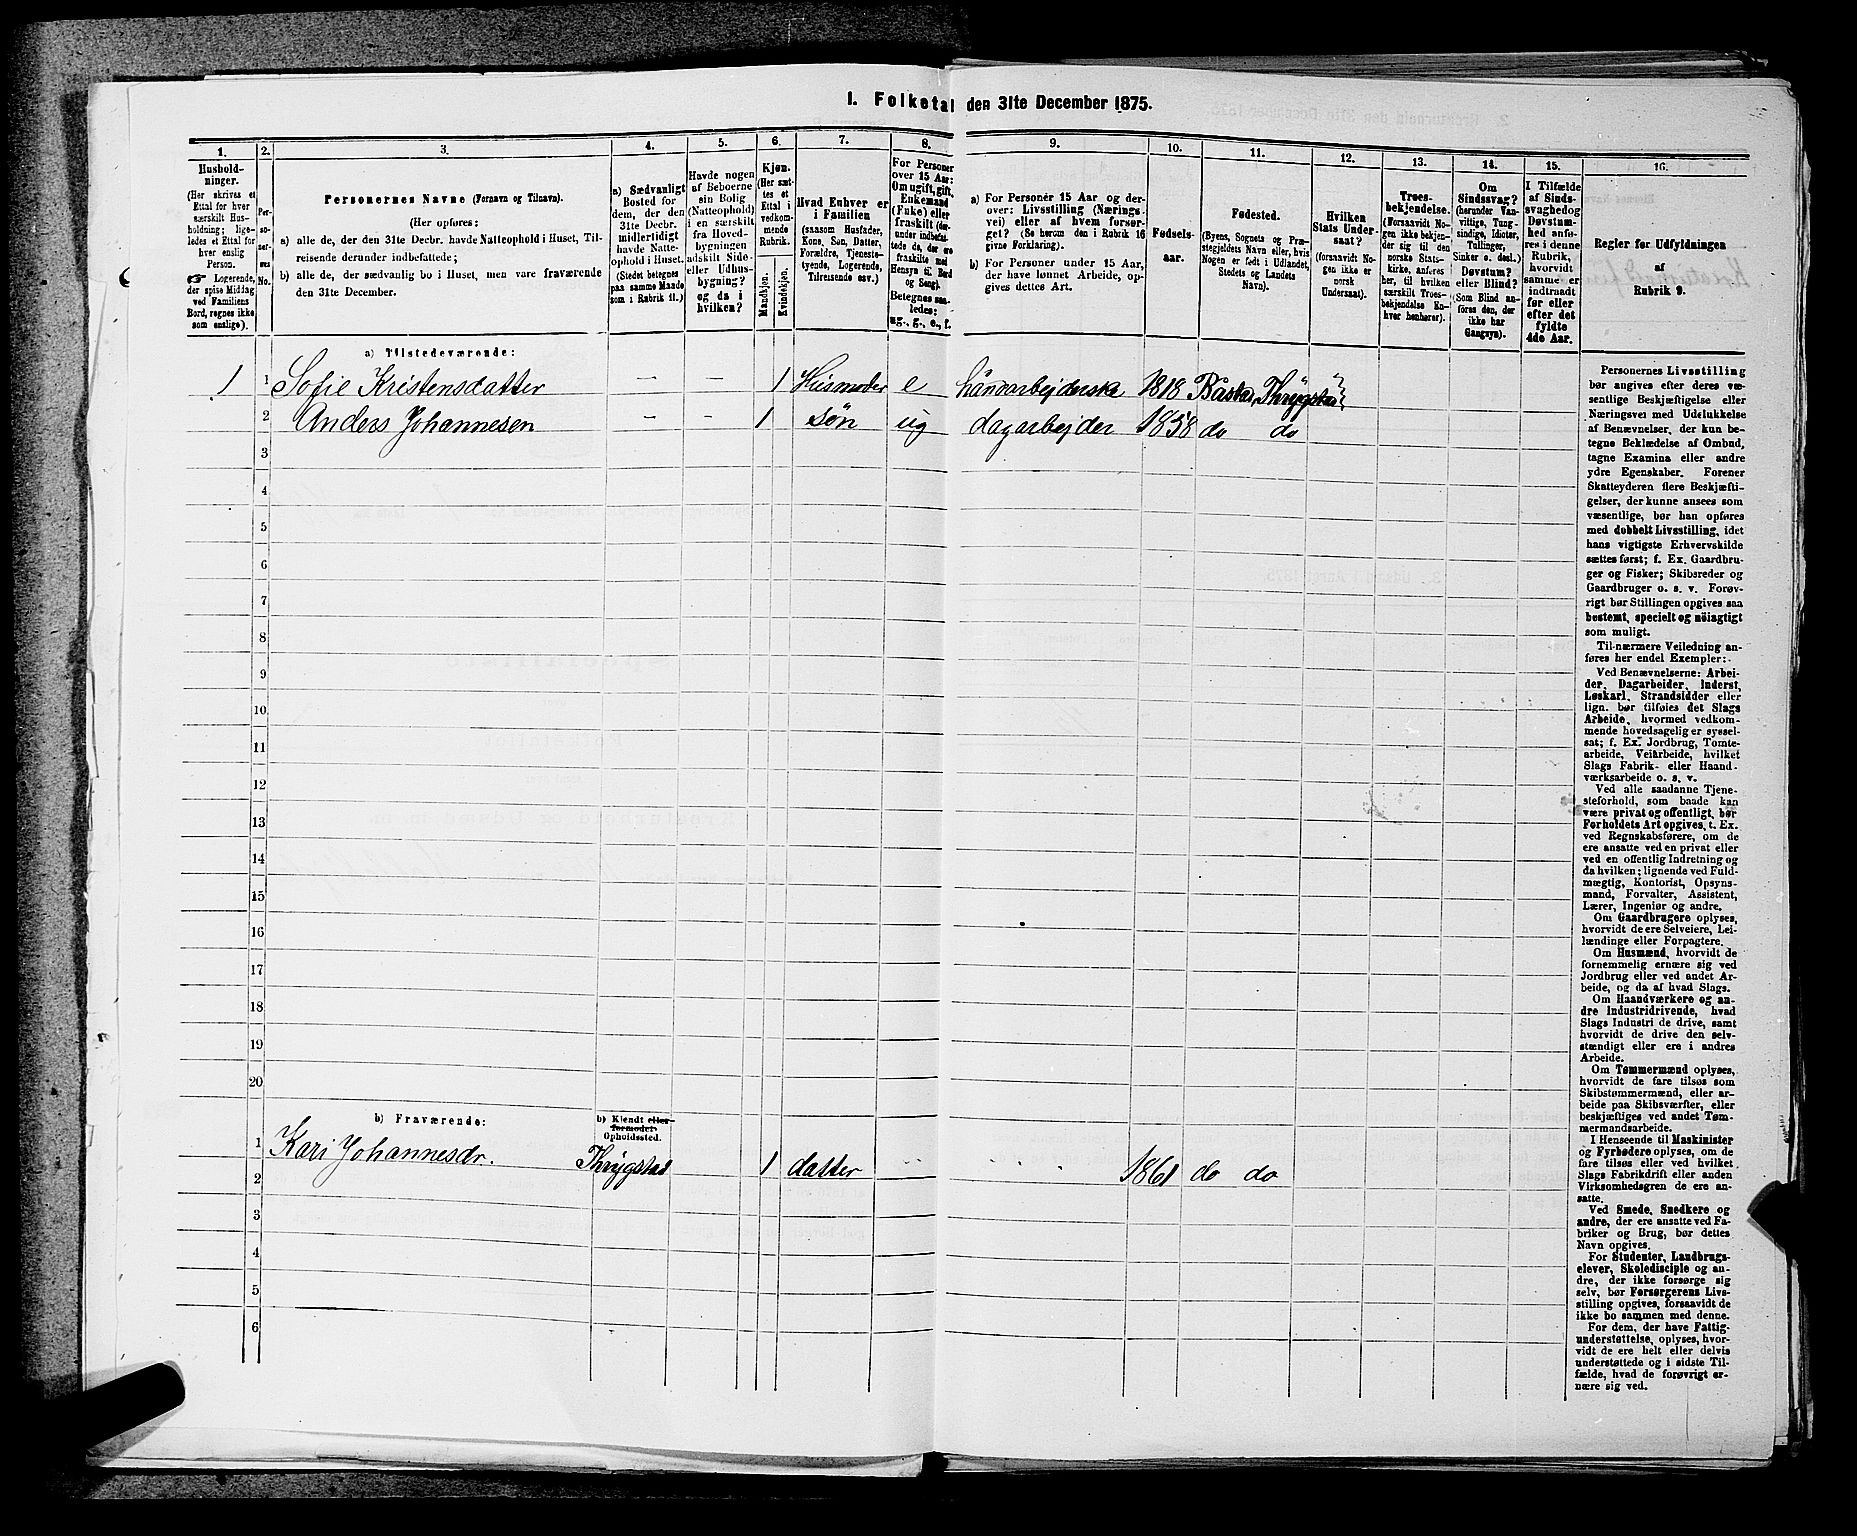 1. Folketal den 31te December 1875.
1. 2. 3. 4. 5. 6. 7. 8. 9. 10. 11. 12. 13. 14. 15. 16.
Hushold-
ninger.
(Her skrives et
Ettal for hver
særskilt Hus-
holdning; lige-
ledes et Ettal for
hver enslig
Person.
☛ Logerende,
der spise Middag
ved Familiens
Bord, regnes ikke
som enslige).
Per-
so-
ner-
nes
No.
Personernes Navne (Fornavn og Tilnavn).
(Her opføres:
a) alle de, der den 31te Decbr. havde Natteophold i Huset, Til-
reisende derunder indbefattede;
b) alle de, der sædvanlig bo i Huset, men vare fraværende
den 31te December.
a) Sædvanligt
Bosted for
dem, der den
31te Decbr.
midlertidigt
havde Natte-
ophold i Huset.
(Stedet betegnes
paa samme Maade
som i Rubrik 11.)
Havde nogen
af Beboerne
sin Bolig
(Natteophold)
i en særskilt
fra Hoved-
bygningen
adskilt Side-
eller Udhus-
bygning?
og da i
hvilken?
Kjøn.
(Her sæt-
tes et
Ettal i
vedkom-
mende
Rubrik.
Mandkjøn.
Kvindekjøn.
Hvad Enhver er
i Familien
(saasom Husfader,
Kone, Søn, Datter,
Forældre, Tjeneste-
tyende, Logerende,
Tilreisende osv.)
For Personer
over 15 Aar:
Om ugift, gift,
Enkemand
(Enke) eller
fraskilt
Hensyn til Bord
og Seng).
Betegnes saa-
ledes:
ug., g., e., f.
a) For Personer 15 Aar og der-
over: Livsstilling (Nærings-
vei) eller af hvem forsør-
get? (Se herom den i Rubrik 16
givne Forklaring).
b) For Personer under 15 Aar,
der have lønnet Arbeide, op-
gives dettes Art.
Fødsels-
aar.
Fødested.
(Byens, Sognets og Præ-
stegjeldets Navn eller, hvis
Nogen er født i Udlandet,
Stedets og Landets
Navn).
Hvilken
Stats Under-
saat?
(forsaavidt No-
gen ikke er
norsk
Undersaat).
Troes-
bekjendelse.
(Forsaavidt No-
gen ikke bekjen-
der sig til den
norske Stats-
kirke, anføres
her, til hvilken
særskilt Troes-
bekjendelse En-
hver henhører).
Om
Sindssvag?
(herunder Van-
vittige, Tung-
sindige, Idioter,
Tullinger,
Sinker o. desl.)
Døvstum?
eller Blind?
(Som Blind an-
føres den, der
ikke har
Gangsyn).
I Tilfælde
af Sinds-
svaghed og
Døvstum-
hed anfø-
res i denne
Rubrik,
hvorvidt
samme er
indtraadt
før eller
efter det
fyldte
4de Aar.
Regler for Udfyldningen
af
Rubrik 9.
a) Tilstedeværende:
1 1 Sofie Kristensdatter — — 1 Husmoder e håndarbejderske 1818 Båstad, Thrygstad
2 Anders Johannesen — — 1 søn ug dagarbejder 1858 do do
3
4
5
6
7
8
9
10
11
12
13
14
15
16
17
18
19
20
b) Fraværende:
b) Kjendt eller
formodet
Opholdssted.
1 Kari Johannesdr. Thrygstad 1 datter 1861 do do
2
3
4
5
6
Personernes Livsstilling
bør angives efter deres væ-
sentlige Beskjæftigelse eller
Næringsvei med Udelukkelse
af Benævnelser, der kun be-
tegne Beklædelse af Ombud,
tagne Examina eller andre
ydre Egenskaber. Forener
Skatteyderen flere Beskjæfti-
gelser, der kunne ansees som
væsentlige, bør han opføres
med dobbelt Livsstilling, idet
hans vigtigste Erhvervskilde
sættes først; f. Ex. Gaardbru-
ger og Fisker; Skibsreder og
Gaardbruger o. s. v. Forøv-
rigt bør Stillingen opgives saa
bestemt, specielt og nöiagtigt
som muligt.
Til nærmere Veiledning an-
føres her endel Exempler:
Ved Benævnelserne: Arbei-
der, Dagarbeider, Inderst,
Løskarl, Strandsidder eller
lign. bør tilføies det Slags
Arbeide, hvormed vedkom-
mende hovedsagelig er syssel-
sat; f. Ex. Jordbrug, Tomte-
arbeide, Veiarbeide, hvilket
Slags Fabrik- eller Haand-
værksarbeide o. s. v.
Ved alle saadanne Tjene-
steforhold, som baade kan
være privat og offentligt, bør
Forholdets Art opgives, t. Ex.
ved Regnskabsførere, om de
ere ansatte ved en privat eller
ved en offentlig Indretning og
da hvilken; lignende ved Fuld-
mægtig, Kontorist, Opsyns-
mand, Forvalter, Assistent,
Lærer, Ingeniør og andre.
Om Gaardbrugere oplyses,
hvorvidt de ere Selveiere, Lei-
lændinge eller Forpagtere.
Om Husmænd, hvorvidt de
fornemmelig ernære sig ved
Jordbrug eller ved andet Ar-
beide, og da af hvad Slags.
Om Haandværkere og an-
dre Industridrivende, hvad
Slags Industri de drive, samt
hvorvidt de drive den selv-
stændigt eller ere i andres
Arbeide.
Om Tømmermænd oplyses,
hvorvidt de fare tilsøs som
Skibstømmermænd, eller ar-
beide paa Skibsværfter, eller
beskjæftiges ved andet Tøm-
mermandsarbeide.
I Henseende til Maskinister
og Fyrbødere oplyses, om de
fare tilsøs eller ved hvilket
Slags Fabrikdrift eller anden
Virksomhedsgren de ere an-
satte.
Ved Smede, Snedkere og
andre, der ere ansatte ved Fa-
briker og Brug, bør dettes
Navn opgives.
For Studenter, Landbrugs-
elever, Skoledisciple og an-
dre, der ikke forsørge sig
selv, bør Forsørgerens Livs-
stilling opgives, forsaavidt de
ikke bo sammen med denne.
For dem, der have Fattig-
understøttelse, oplyses, hvor-
vidt de ere helt eller delvis
understøttede og i sidste Til-
fælde, hvad de forøvrigt er-
nære sig ved.